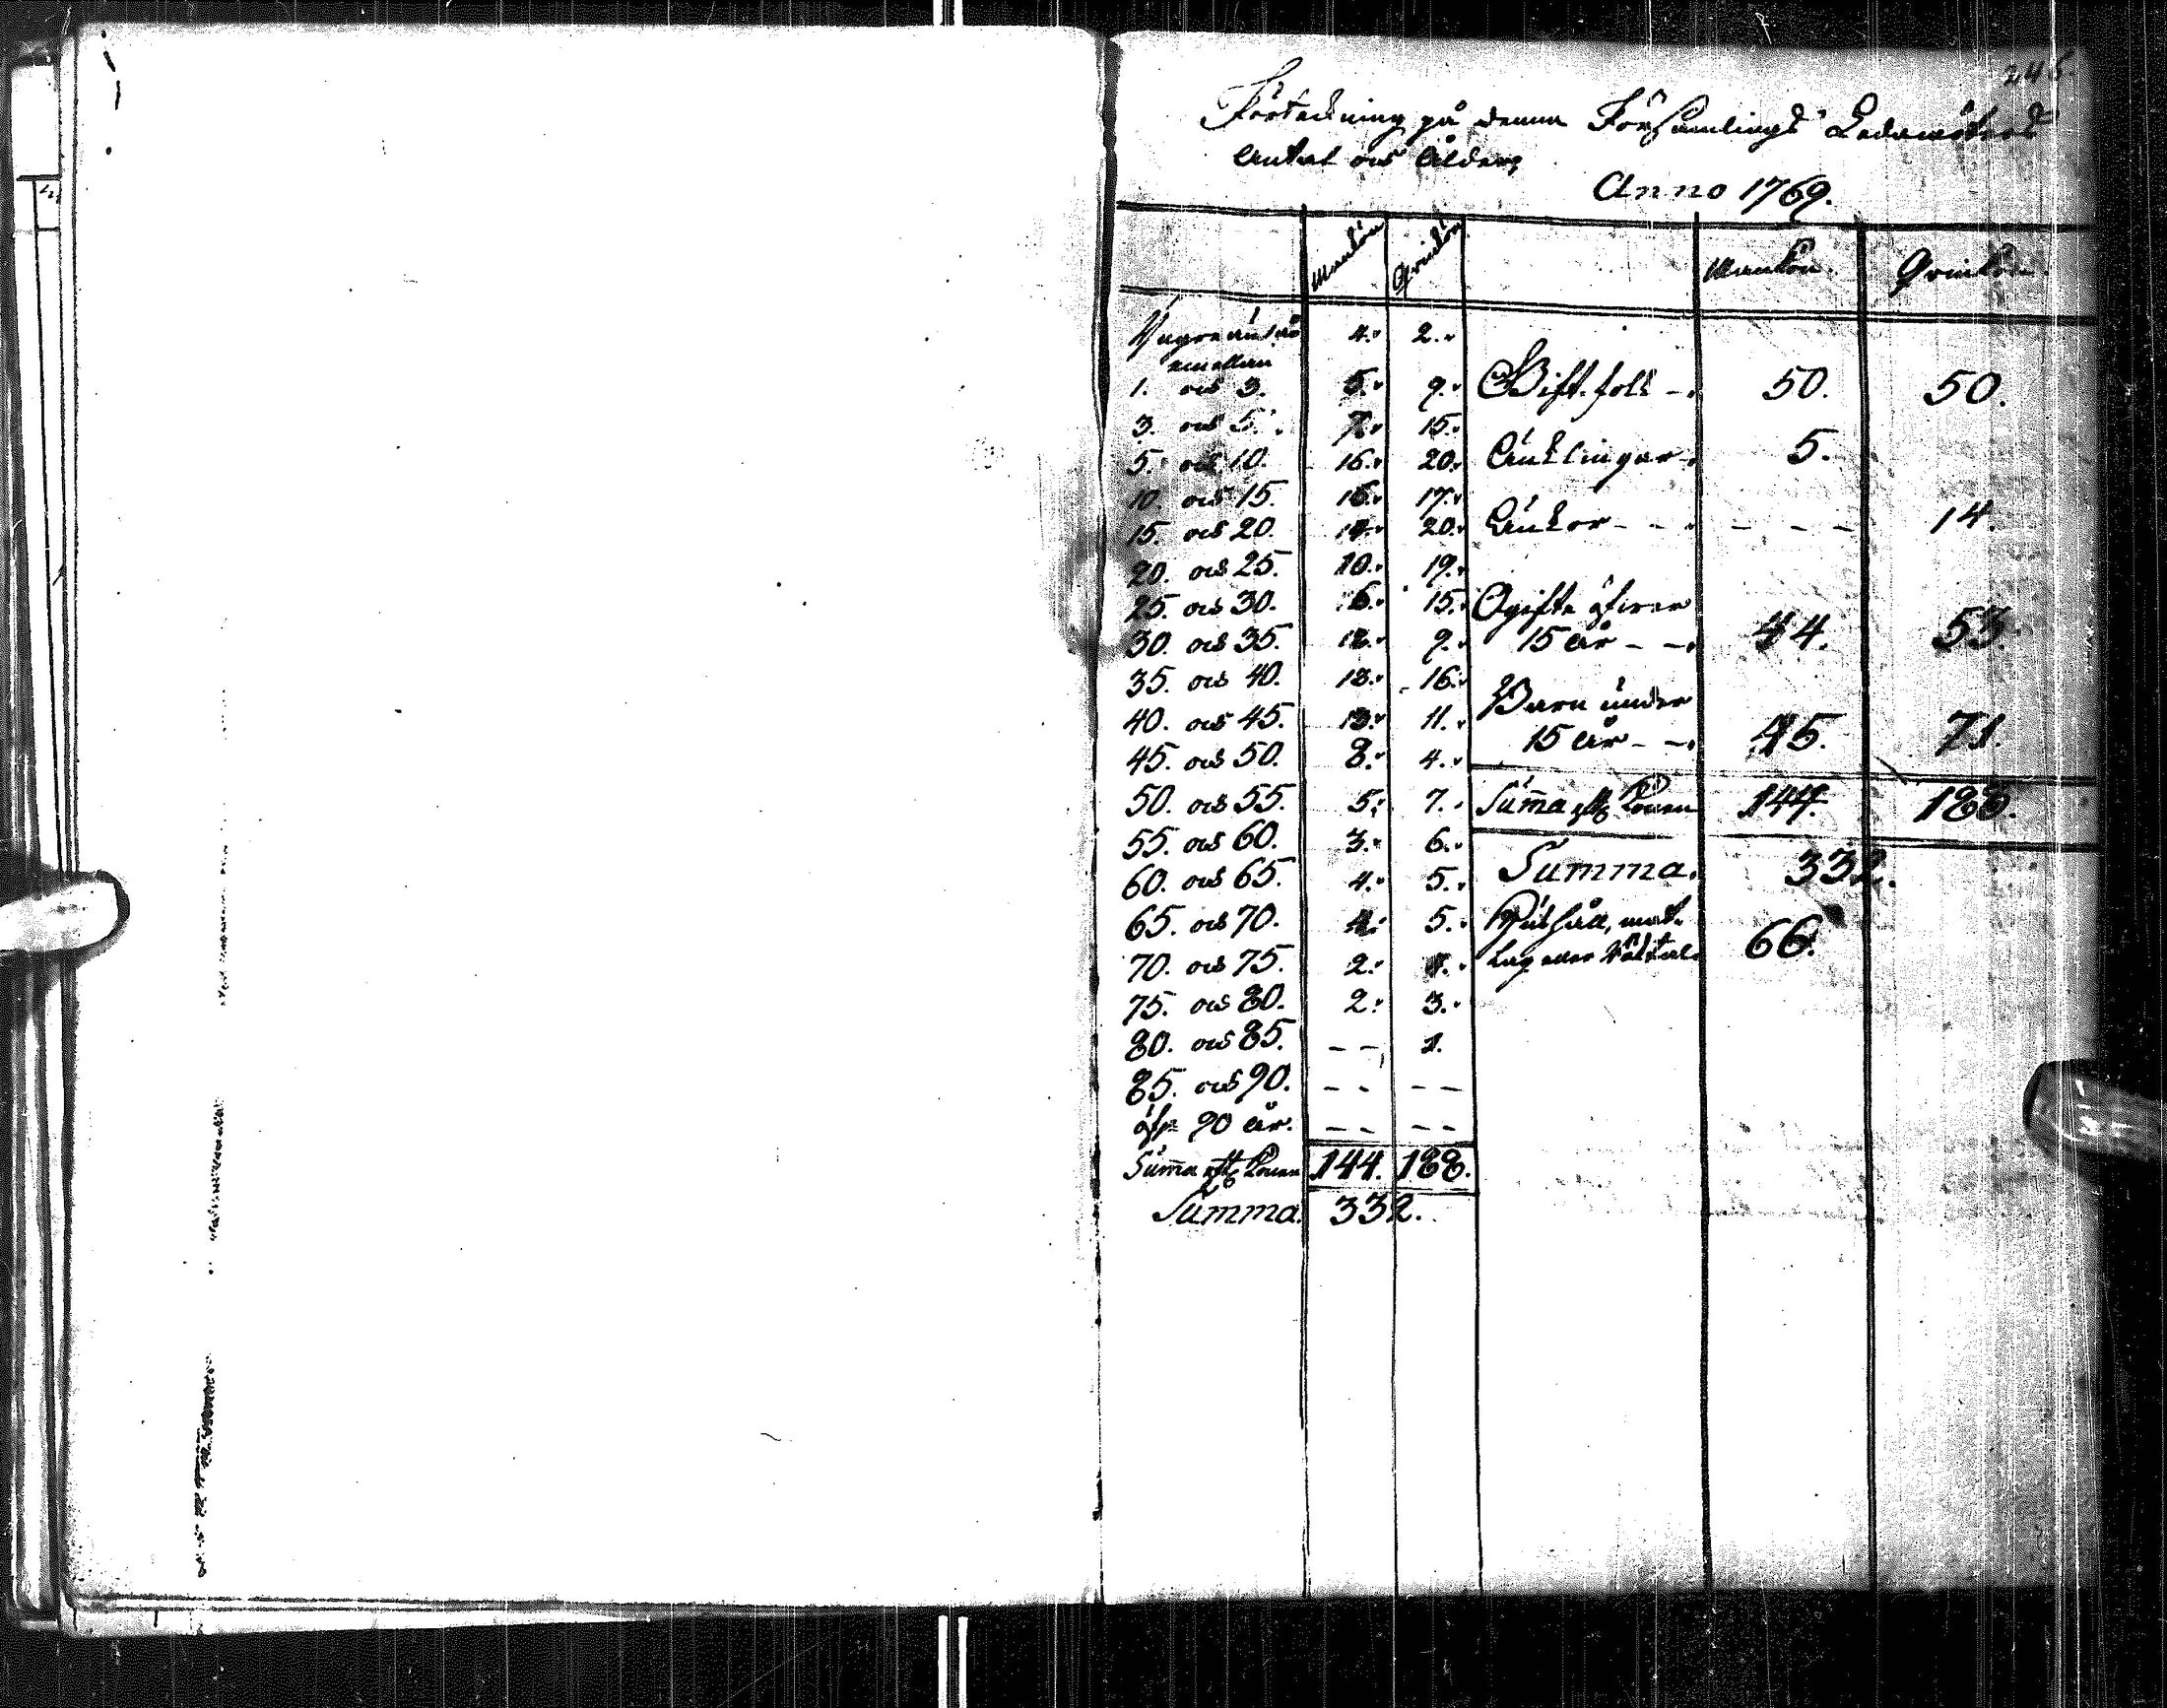 245.
Förteckning på denna Församlings Ledamöters
Antal och Ålder,
Anno 1769.
Mankön Qvinkön Mankön. Qvinkön.
Yngre än 1 år 4. 2.
emellan
1. och 3. 5. 9. Gift folk - 50. 50.
3. och 5. 7. 15.
5. och 10. 16. 20. Änklingar 5.
10. och 15. 16. 17.
15. och 20. 14. 20. Änkor - - - - - - 14.
20. och 25. 10. 19.
25. och 30. 6. 15. Ogifte öfwer
30. och 35. 12. 9. 15 år - - 44. 53.
35. och 40. 13. 16. Barn under
40. och 45. 13. 11. 15 år - - 45. 71.
45. och 50. 8. 4.
50. och 55. 5. 7. Summa efter Könen 144. 188.
55. och 60. 3. 6.
60. och 65. 4. 5. Summa. 332.
65. och 70. 4. 5. Hushåll, mat-
70. och 75. 2. 4. lag eller Röktal 66.
75. och 80. 2. 3.
80. och 85. - - 1.
85. och 90. - - - -
öfr 90 år. - - - -
Summa efter Könen 144. 188.
Summa. 332.